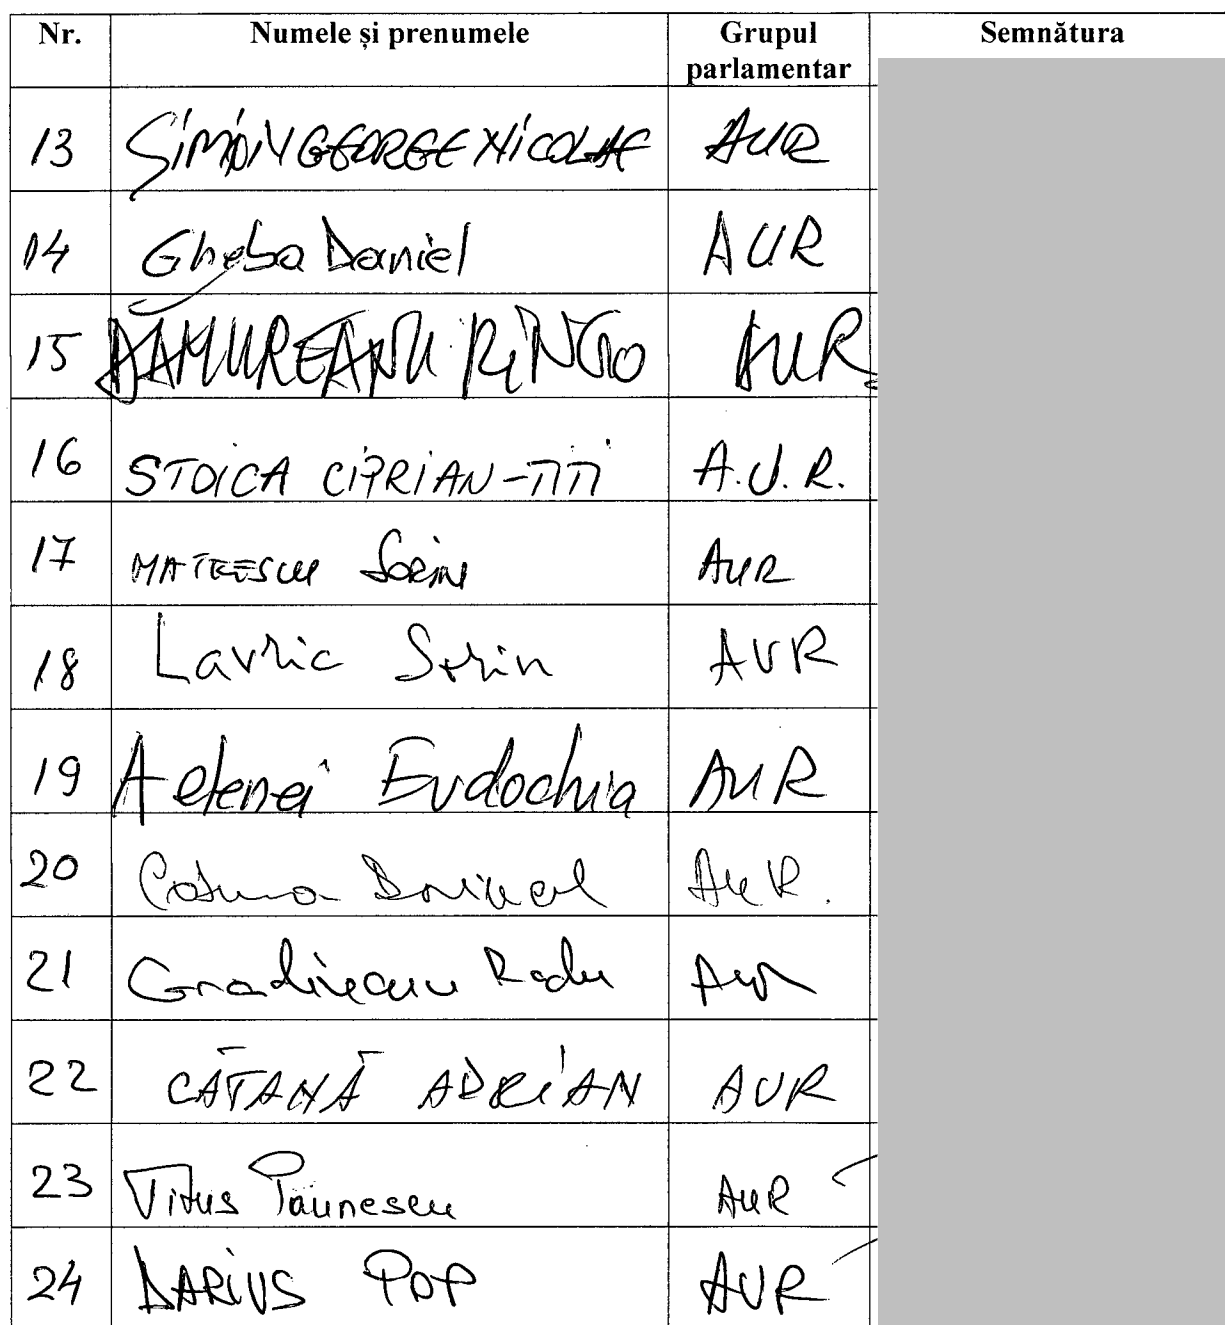 Nr. Numele și prenumele Grupul parlamentar Semnătura
13 SIMION GEORGE NICOLAE AUR
14 Gheba Daniel AUR
15 DĂMUREANU RINGO AUR
16 STOICA CIPRIAN-TITI A.U.R.
17 MATEESCU SORIN AUR
18 Lavric Sorin AUR
19 Aelenei Evdochia AUR
20 AUR.
21 Gradineanu Radu AUR
22 CĂTANĂ ADRIAN AUR
23 Titus Păunescu AUR
24 DARIUS POP AUR